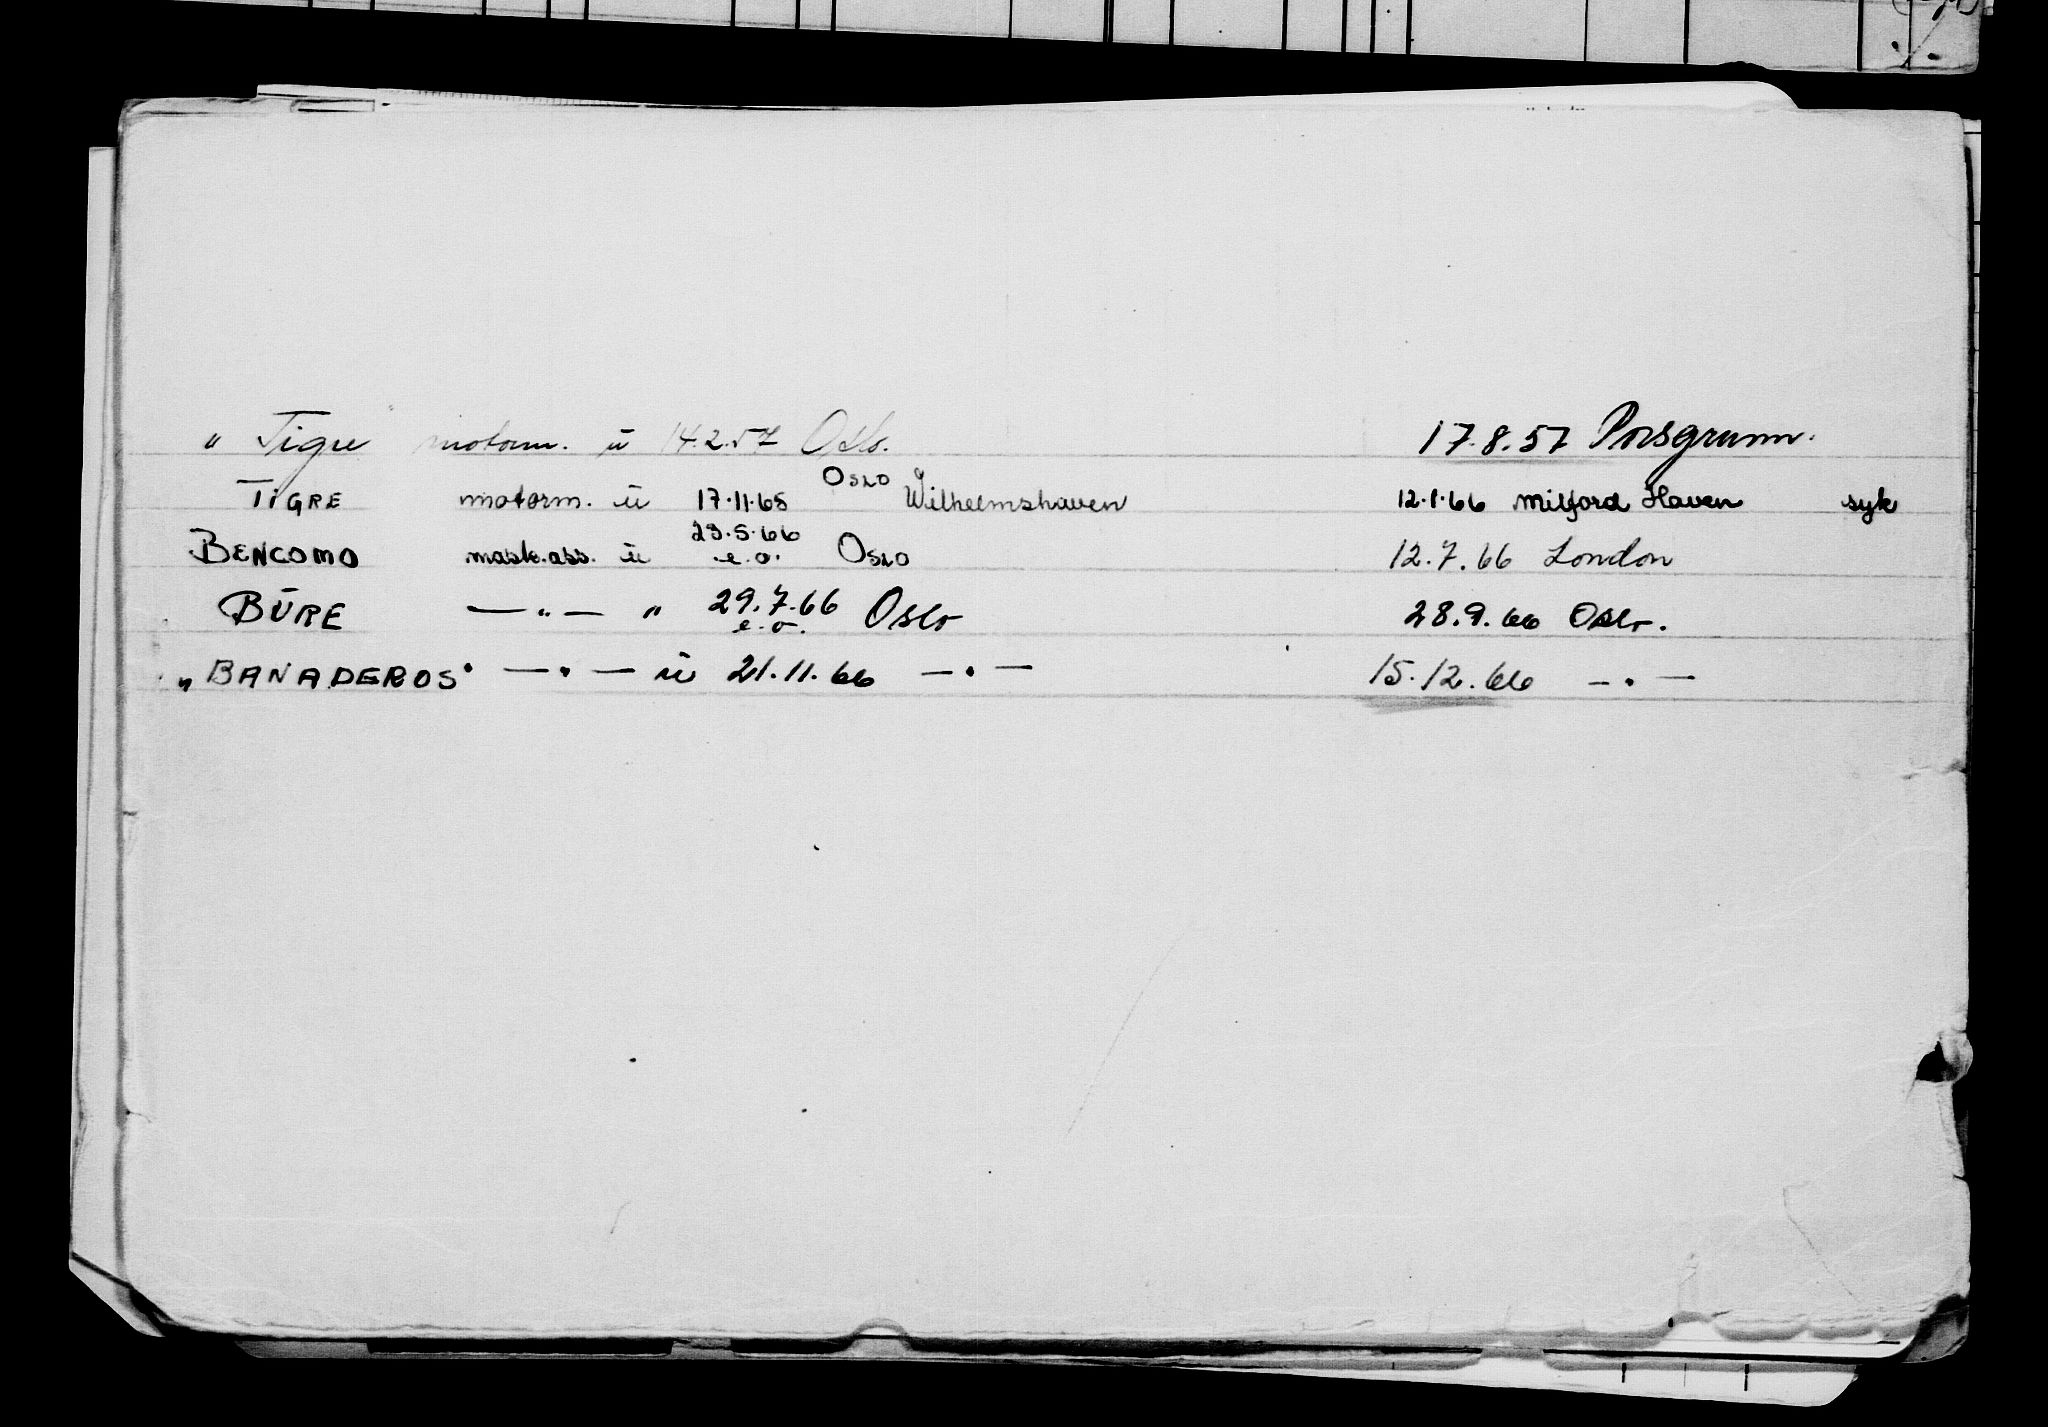 " Tigre " motorm. ū 14.2.57 Oslo. 17.8.57 Porsgrunn.
TIGRE motorm. ū 17.11.65 OSLO Wilhelmshaven 12.1.66 Milford Haven syk
BENCOMO mask.ass. ū 23.5.66 e.o. OSLO 12.7.66 London
BURE — " — " 29.7.66 e.o. Oslo 28.9.66 Oslo.
„BANADEROS" — " — ū 21.11.66 — " — 15.12.66 — " —